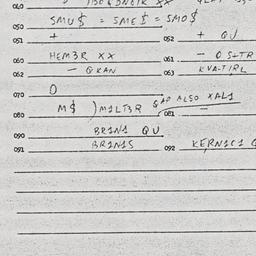 040
050 SMU$ = SME$ = SMO$
051 + 052 + QU
060 HEM3R XX 061 - O S+TR
062 - GRAN 063 KVA-TIRL
070 0
080 M$ ) M1LT3R GAP ALSO XAL1 081 -
090 BR1N1 QU
091 BR1N1S 092 KERN1C1